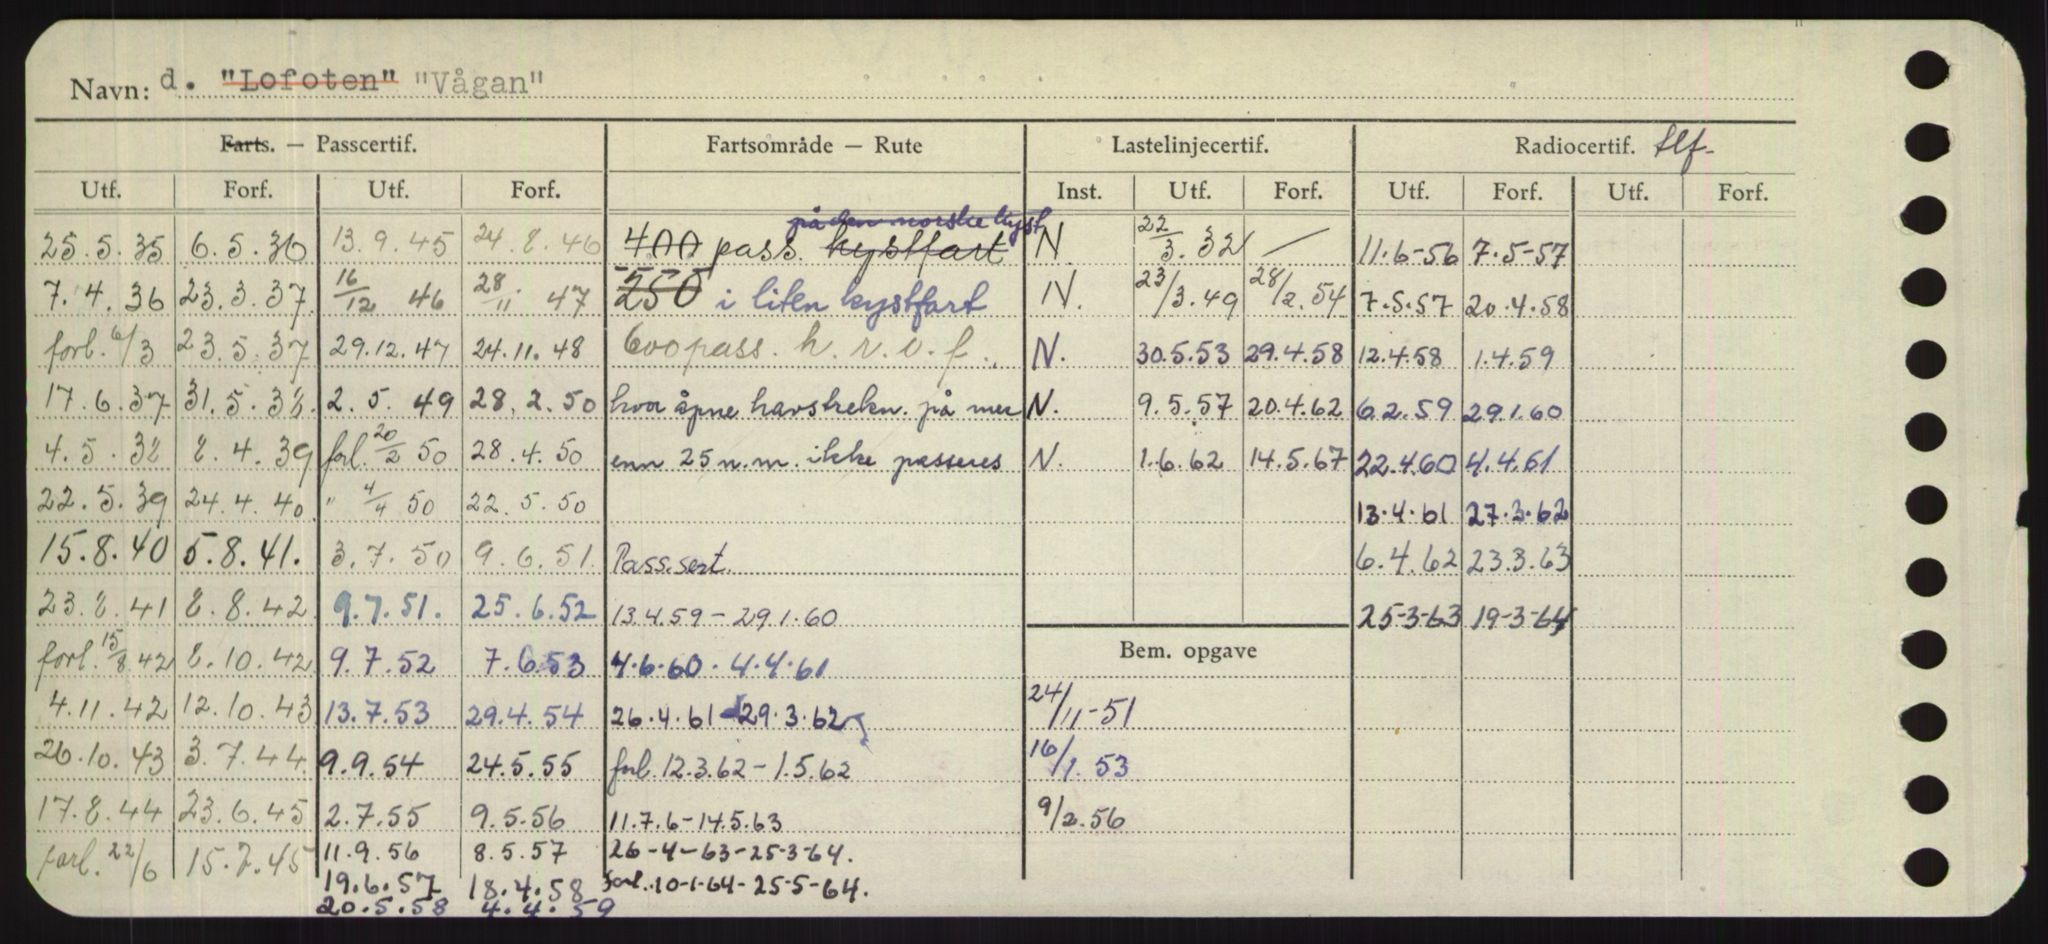 Navn: d. "Lofoten" "Vågan"
Farts. — Passcertif. Fartsområde — Rute Lastelinjecertif. Radiocertif. tlf-
Utf. Forf. Utf. Forf. Inst. Utf. Forf. Utf. Forf. Utf. Forf.
på den norske kyst
25.5.35 6.5.36 13.9.45 24.8.46 400 pass. kystfart N. 22/3.32 / 11.6-56 7.5-57
7.4.36 23.3.37 16/12 46 28/11 47 250 i liten kystfart N. 23/3.49 28/2.54 7.5.57 20.4.58
forl. 6/3 23.5.37 29.12.47 24.11.48 600 pass. h.r.v.f. N. 30.5.53 29.4.58 12.4.58 1.4.59
17.6.37 31.5.38. 2.5.49 28.2.50 hvor åpne havstrekn. på mer N. 9.5.57 20.4.62 6.2.59 29.1.60
4.5.38 8.4.39 forl. 20/2 50 28.4.50 enn 25 n.m. ikke passeres N. 1.6.62 14.5.67 22.4.60 4.4.61
22.5.39 24.4.40 " 4/4 50 22.5.50 13.4.61 27.3.62
15.8.40 5.8.41. 3.7.50 9.6.51. Pass.sert. 6.4.62 23.3.63
23.8.41 8.8.42 9.7.51. 25.6.52 13.4.59 - 29.1.60 25-3-63 19-3-64
forl. 15/8.42 8.10.42 9.7.52 7.6.53 4.6.60 - 4.4.61 Bem. opgave
4.11.42 12.10.43 13.7.53 29.4.54 26.4.61 - 29.3.62 24/11-51
26.10.43 3.7.44 9.9.54 24.5.55 forl. 12.3.62 - 1.5.62 16/1.53
17.8.44 23.6.45 2.7.55 9.5.56 11.7.6 - 14.5.63 9/2.56
forl. 22/6 15.7.45 11.9.56 8.5.57 26-4-63-25-3-64.
19.6.57 18.4.58 forl. 10-1-64-25-5-64.
20.5.58 4.4.59